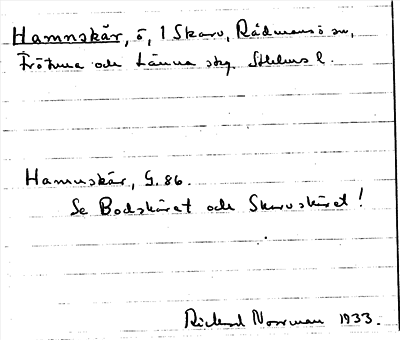 Hamnskär, ö, 1 Skarv, Rådmansö sn,
Frötuna och Länna skg. Sthlms l.
Hamnskär, G. 86.
Se Bodskäret och Skarvskäret!
Rickard Norrman 1933.